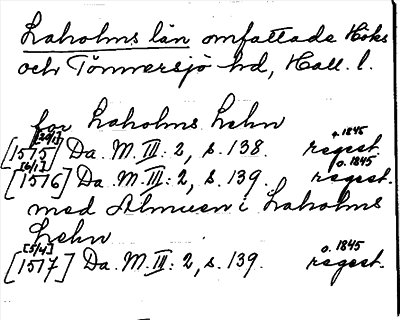 Laholms län omfattade Höks
och Tönnersjö hd, Hall. l.
for Laholms Lehn
[29/1]
[1515] Da. M. III: 2, s. 138. regest.
o. 1845
[6/1]
[1576] Da. M. III: 2, s. 139. regest.
o. 1845
med Almuen i Laholms
Lehn
[5/4]
[1517] Da. M. III: 2, s. 139. regest.
o. 1845